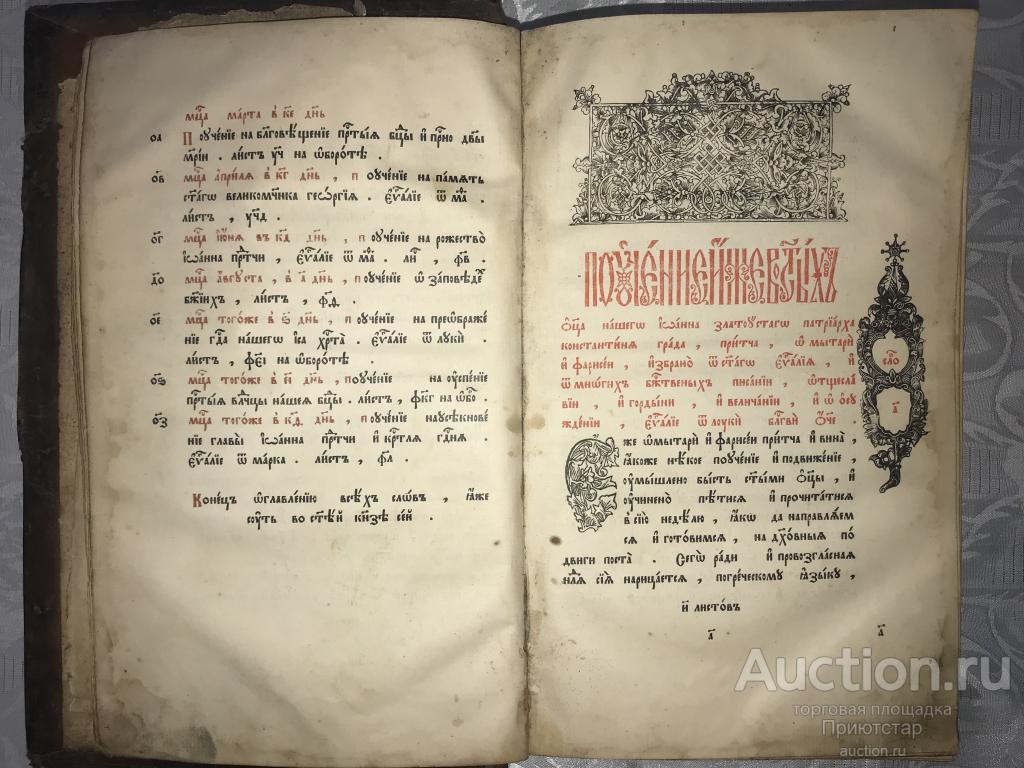 мц҃а марта в к҃е дн҃ь
о҃а Поученїе на бл҃говѣщенїе прⷭ҇тыѧ бц҃ы и҆ прⷭ҇но дв҃ы
мр҃їи . листъ у҃ч на ѡ҆боротѣ .
о҃в мц҃а а҆прилѧ в к҃г дн҃ь , поученїе на памѧть
ст҃агѡ великомч҃нка геѡ́ргїѧ . є҆ѵⷢ҇алїе ѿ мⷴ҇а .
листъ , у҃чд .
о҃г мц҃а і҆ю҆нѧ въ к҃д дн҃ь , поученїе на рожествѡ
і҆ѡа́нна прⷣ҇тчи , є҆ѵⷢ҇алїе ѿ мⷴ҇а . лиⷭ҇ , ф҃в .
о҃д мц҃а а҆́вгуста , в а҃ дн҃ь , поученїе ѡ҆ за́повѣдеⷯ
бж҃їихъ , листъ , ф҃д .
о҃е мц҃а тогоже в ѕ҃ дн҃ь , поученїе на преѡбраже
нїе гдⷭ҇а нашегѡ і҆с҃а хрⷭ҇та . є҆ѵⷢ҇алїе ѿ луки .
листъ , ф҃еі на ѡ҆боротѣ .
о҃ѕ мц҃а тогоже в е҃і дн҃ь , поученїе на ѹ҆спенїе
прⷭ҇тыѧ влⷣ҇чцы нашеѧ бц҃ы . листъ , ф҃кг на ѡ҆боⷬ҇ .
о҃з мц҃а тогоже в к҃ѳ дн҃ь , поученїе наусѣкнове
нїе главы і҆ѡа́нна прⷣ҇тчи и҆ крⷭ҇тлѧ гдⷭ҇нѧ .
є҆ѵⷢ҇алїе ѿ марка . листъ , ф҃л .
Конецъ ѡ҆главленїю всѣхъ слѡвъ , ꙗ҆́же
сꙋть во ст҃ѣй кни́зѣ се́й .
поꙋченїе и҆́же въ ст҃ы́хъ
ѻ҆ц҃а на́шегѡ і҆ѡа́нна златоустагѡ патрїа́рха
константинѧ града , притча , ѡ҆ мытарѝ
и҆ фарисе́и , и҆збрано ѿ ст҃агѡ є҆ѵⷢ҇алїѧ , и҆
ѿ мно́гихъ бжⷭ҇твеныхъ писанїи , ѡ҆тщесла
вїи , и҆ гордыни , и҆ величанїи , и҆ ѡ҆ ѻ҆сꙋ
жденїи , є҆ѵⷢ҇алїе ѿлꙋки̑ блⷭ҇гви̑ ѻ҆́ч҃е .
сло
а҃
Еже ѡ҆мытарѝ и҆ фарисеи при́тча и҆ вина̀ ,
ꙗ҆коже нѣкое поученїе и҆ подвиженїе ,
ѹ҆мышлено бысть ст҃ыми ѻ҆ц҃ы , и҆
ѹ҆чинено пѣтисѧ и҆ прочита́тисѧ
в сїю̀ недѣлю , ꙗ҆́кѡ да направлѧем
сѧ и҆ готовимсѧ , на дх҃овныѧ по
двиги поста̀ . Сегѡ̀ ради и҆ провозгласнаѧ
нлⷧ҇ѧ сїѧ̀ нарицается , погреческому ꙗ҆зыку ,
и҃ листовъ
а҃ а҃
Auction.ru
торговая площадка
Приютстар
auction.ru